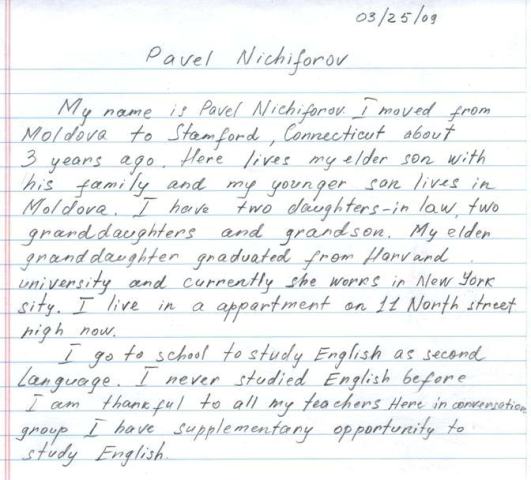 03/25/09
Pavel Nichiforov
My name is Pavel Nichiforov. I moved from
Moldova to Stamford, Connecticut about
3 years ago. Here lives my elder son with
his family and my younger son lives in
Moldova. I have two daughters-in law, two
granddaughters and grandson. My elder
granddaughter graduated from Harvard
university and currently she works in New York
sity. I live in a appartment on 11 North street
nigh now.
I go to school to study English as second
Language. I never studied English before
I am thankful to all my teachers Here in conversation
group I have supplementary opportunity to
study English.